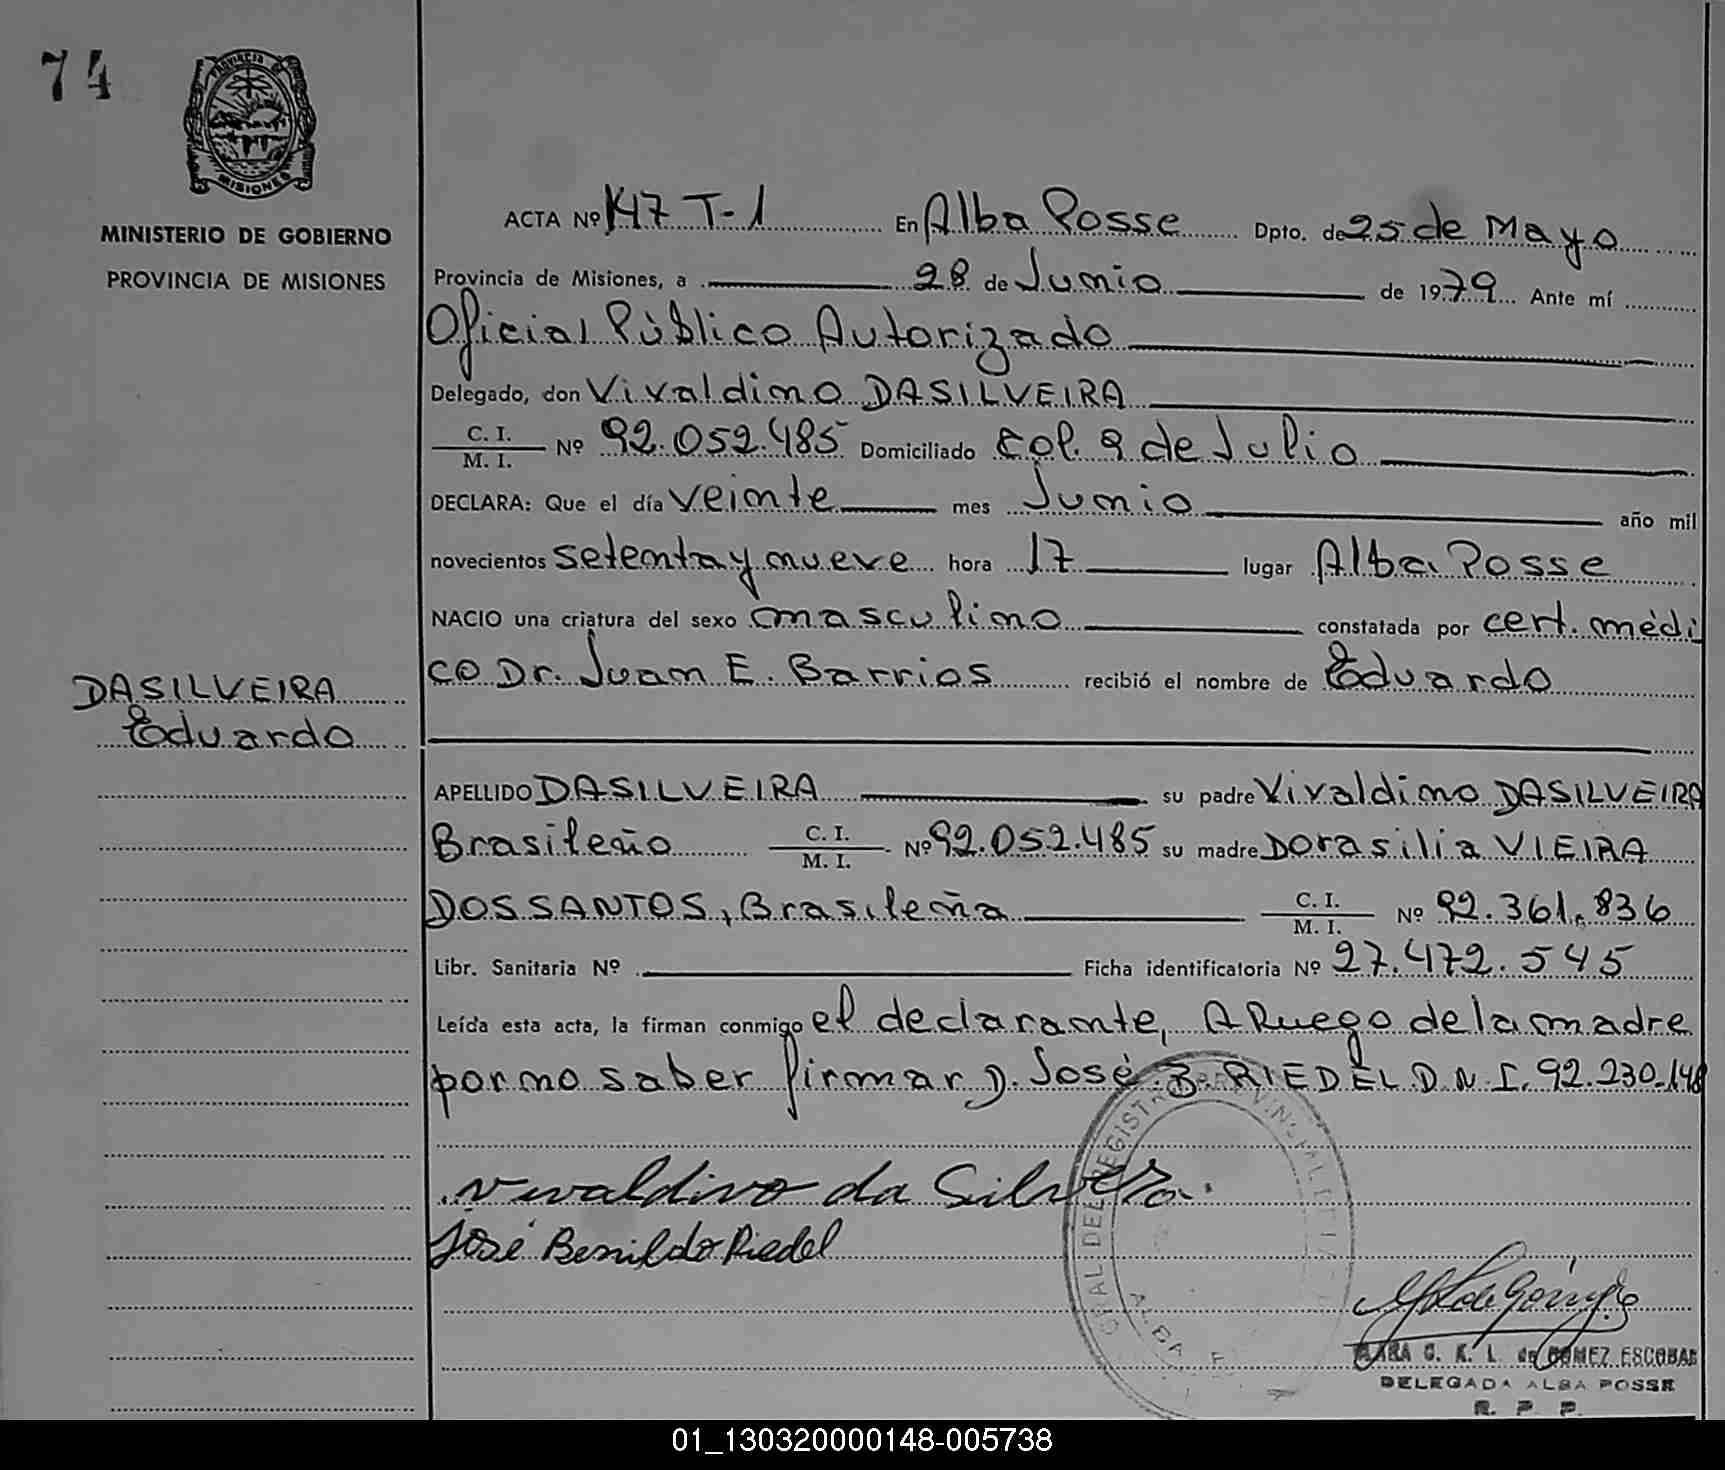 74
PROVINCIA DE
MISIONES
MINISTERIO DE GOBIERNO
PROVINCIA DE MISIONES
ACTA Nº 147 T-1 En Alba Posse Dpto. de 25 de Mayo
Provincia de Misiones, a 28 de Junio de 1979 Ante mí
Oficial Público Autorizado
Delegado, don Vivaldino DASILVEIRA
C. I. / M. I. Nº 92.052.485 Domiciliado Col. 9 de Julio
DECLARA: Que el día veinte mes Junio año mil
novecientos setenta y nueve hora 17 lugar Alba Posse
NACIO una criatura del sexo masculino constatada por cert. médi
co Dr. Juan E. Barrios recibió el nombre de Eduardo
DASILVEIRA
Eduardo
APELLIDO DASILVEIRA su padre Vivaldino DASILVEIRA
Brasileño C. I. / M. I. Nº 92.052.485 su madre Dorasilia VIEIRA
DOSSANTOS, Brasileña C. I. / M. I. Nº 92.361.836
Libr. Sanitaria Nº Ficha identificatoria Nº 27.472.545
Leída esta acta, la firman conmigo el declarante, A Ruego de la madre
por no saber firmar D. José B. RIEDEL D.N.I. 92.230.148
Vivaldino da Silveira
José Benildo Riedel
GRAL DEL REGISTRO PROVINCIAL DE
ALBA P
C. K. L. de GOMEZ ESCOBAR
DELEGADA ALBA POSSE
R. P. P.
01_130320000148-005738